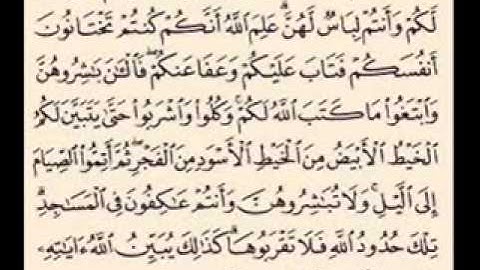 لَكُمْ وَأَنتُمْ لِبَاسٌ لَّهُنَّ ۗ عَلِمَ ٱللَّهُ أَنَّكُمْ كُنتُمْ تَخْتَانُونَ
أَنفُسَكُمْ فَتَابَ عَلَيْكُمْ وَعَفَا عَنكُمْ ۖ فَٱلْـَٰٔنَ بَٰشِرُوهُنَّ
وَٱبْتَغُوا۟ مَا كَتَبَ ٱللَّهُ لَكُمْ ۚ وَكُلُوا۟ وَٱشْرَبُوا۟ حَتَّىٰ يَتَبَيَّنَ لَكُمُ
ٱلْخَيْطُ ٱلْأَبْيَضُ مِنَ ٱلْخَيْطِ ٱلْأَسْوَدِ مِنَ ٱلْفَجْرِ ۖ ثُمَّ أَتِمُّوا۟ ٱلصِّيَامَ
إِلَى ٱلَّيْلِ ۚ وَلَا تُبَٰشِرُوهُنَّ وَأَنتُمْ عَٰكِفُونَ فِى ٱلْمَسَٰجِدِ ۗ
تِلْكَ حُدُودُ ٱللَّهِ فَلَا تَقْرَبُوهَا ۗ كَذَٰلِكَ يُبَيِّنُ ٱللَّهُ ءَايَٰتِهِۦ